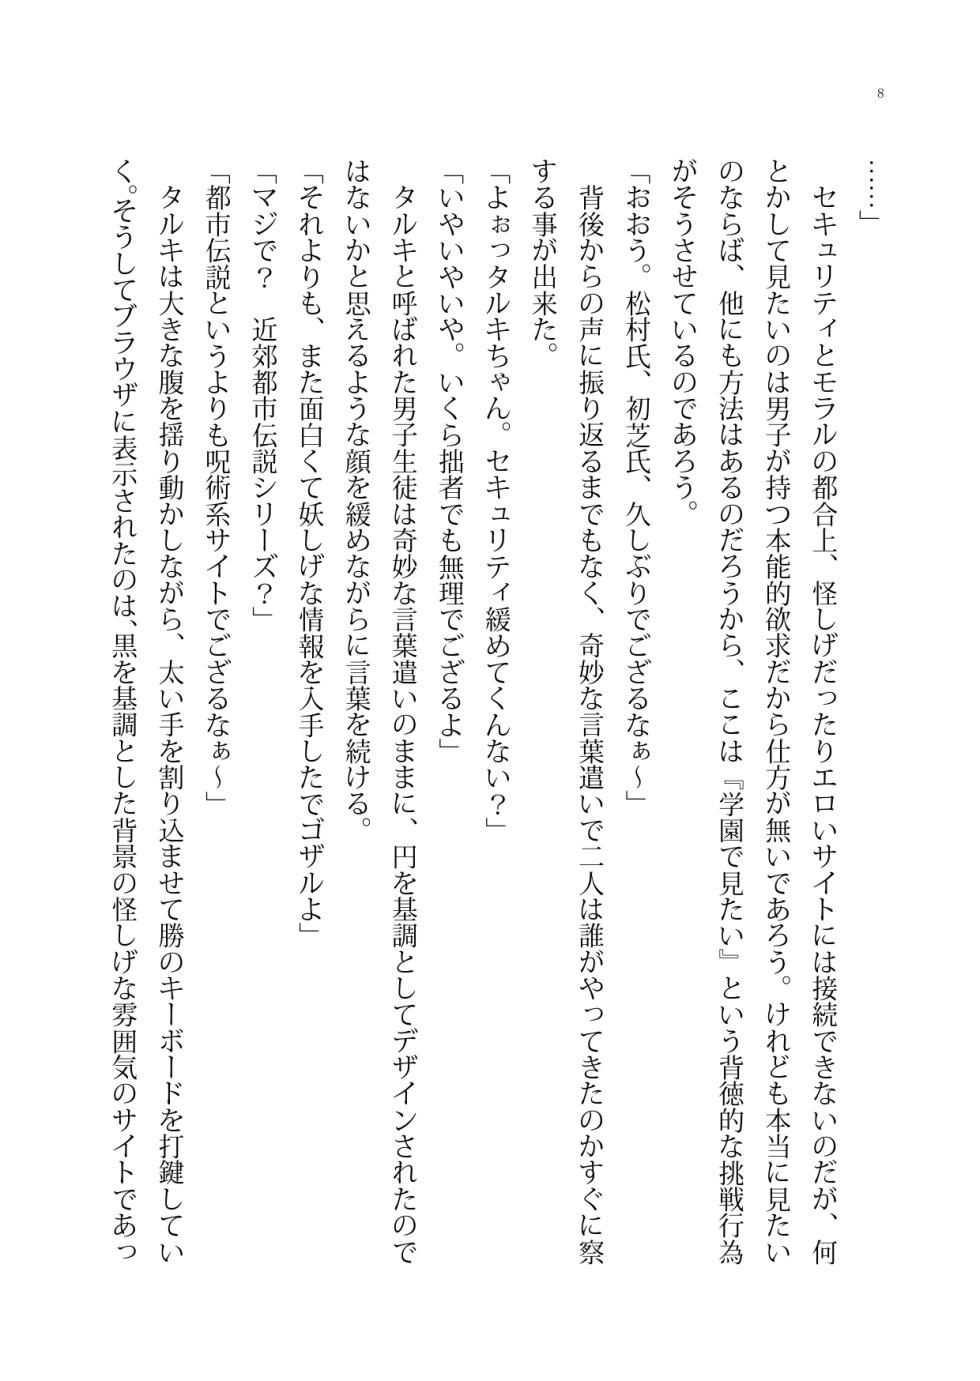 8
……」
　セキュリティとモラルの都合上、怪しげだったりエロいサイトには接続できないのだが、何
とかして見たいのは男子が持つ本能的欲求だから仕方が無いであろう。けれども本当に見たい
のならば、他にも方法はあるのだろうから、ここは『学園で見たい』という背徳的な挑戦行為
がそうさせているのであろう。
「おおう。松村氏、初芝氏、久しぶりでござるなぁ～」
　背後からの声に振り返るまでもなく、奇妙な言葉遣いで二人は誰がやってきたのかすぐに察
する事が出来た。
「よぉっタルキちゃん。セキュリティ緩めてくんない？」
「いやいやいや。いくら拙者でも無理でござるよ」
　タルキと呼ばれた男子生徒は奇妙な言葉遣いのままに、円を基調としてデザインされたので
はないかと思えるような顔を緩めながらに言葉を続ける。
「それよりも、また面白くて妖しげな情報を入手したでゴザルよ」
「マジで？　近郊都市伝説シリーズ？」
「都市伝説というよりも呪術系サイトでござるなぁ～」
　タルキは大きな腹を揺り動かしながら、太い手を割り込ませて勝のキーボードを打鍵してい
く。そうしてブラウザに表示されたのは、黒を基調とした背景の怪しげな雰囲気のサイトであっ